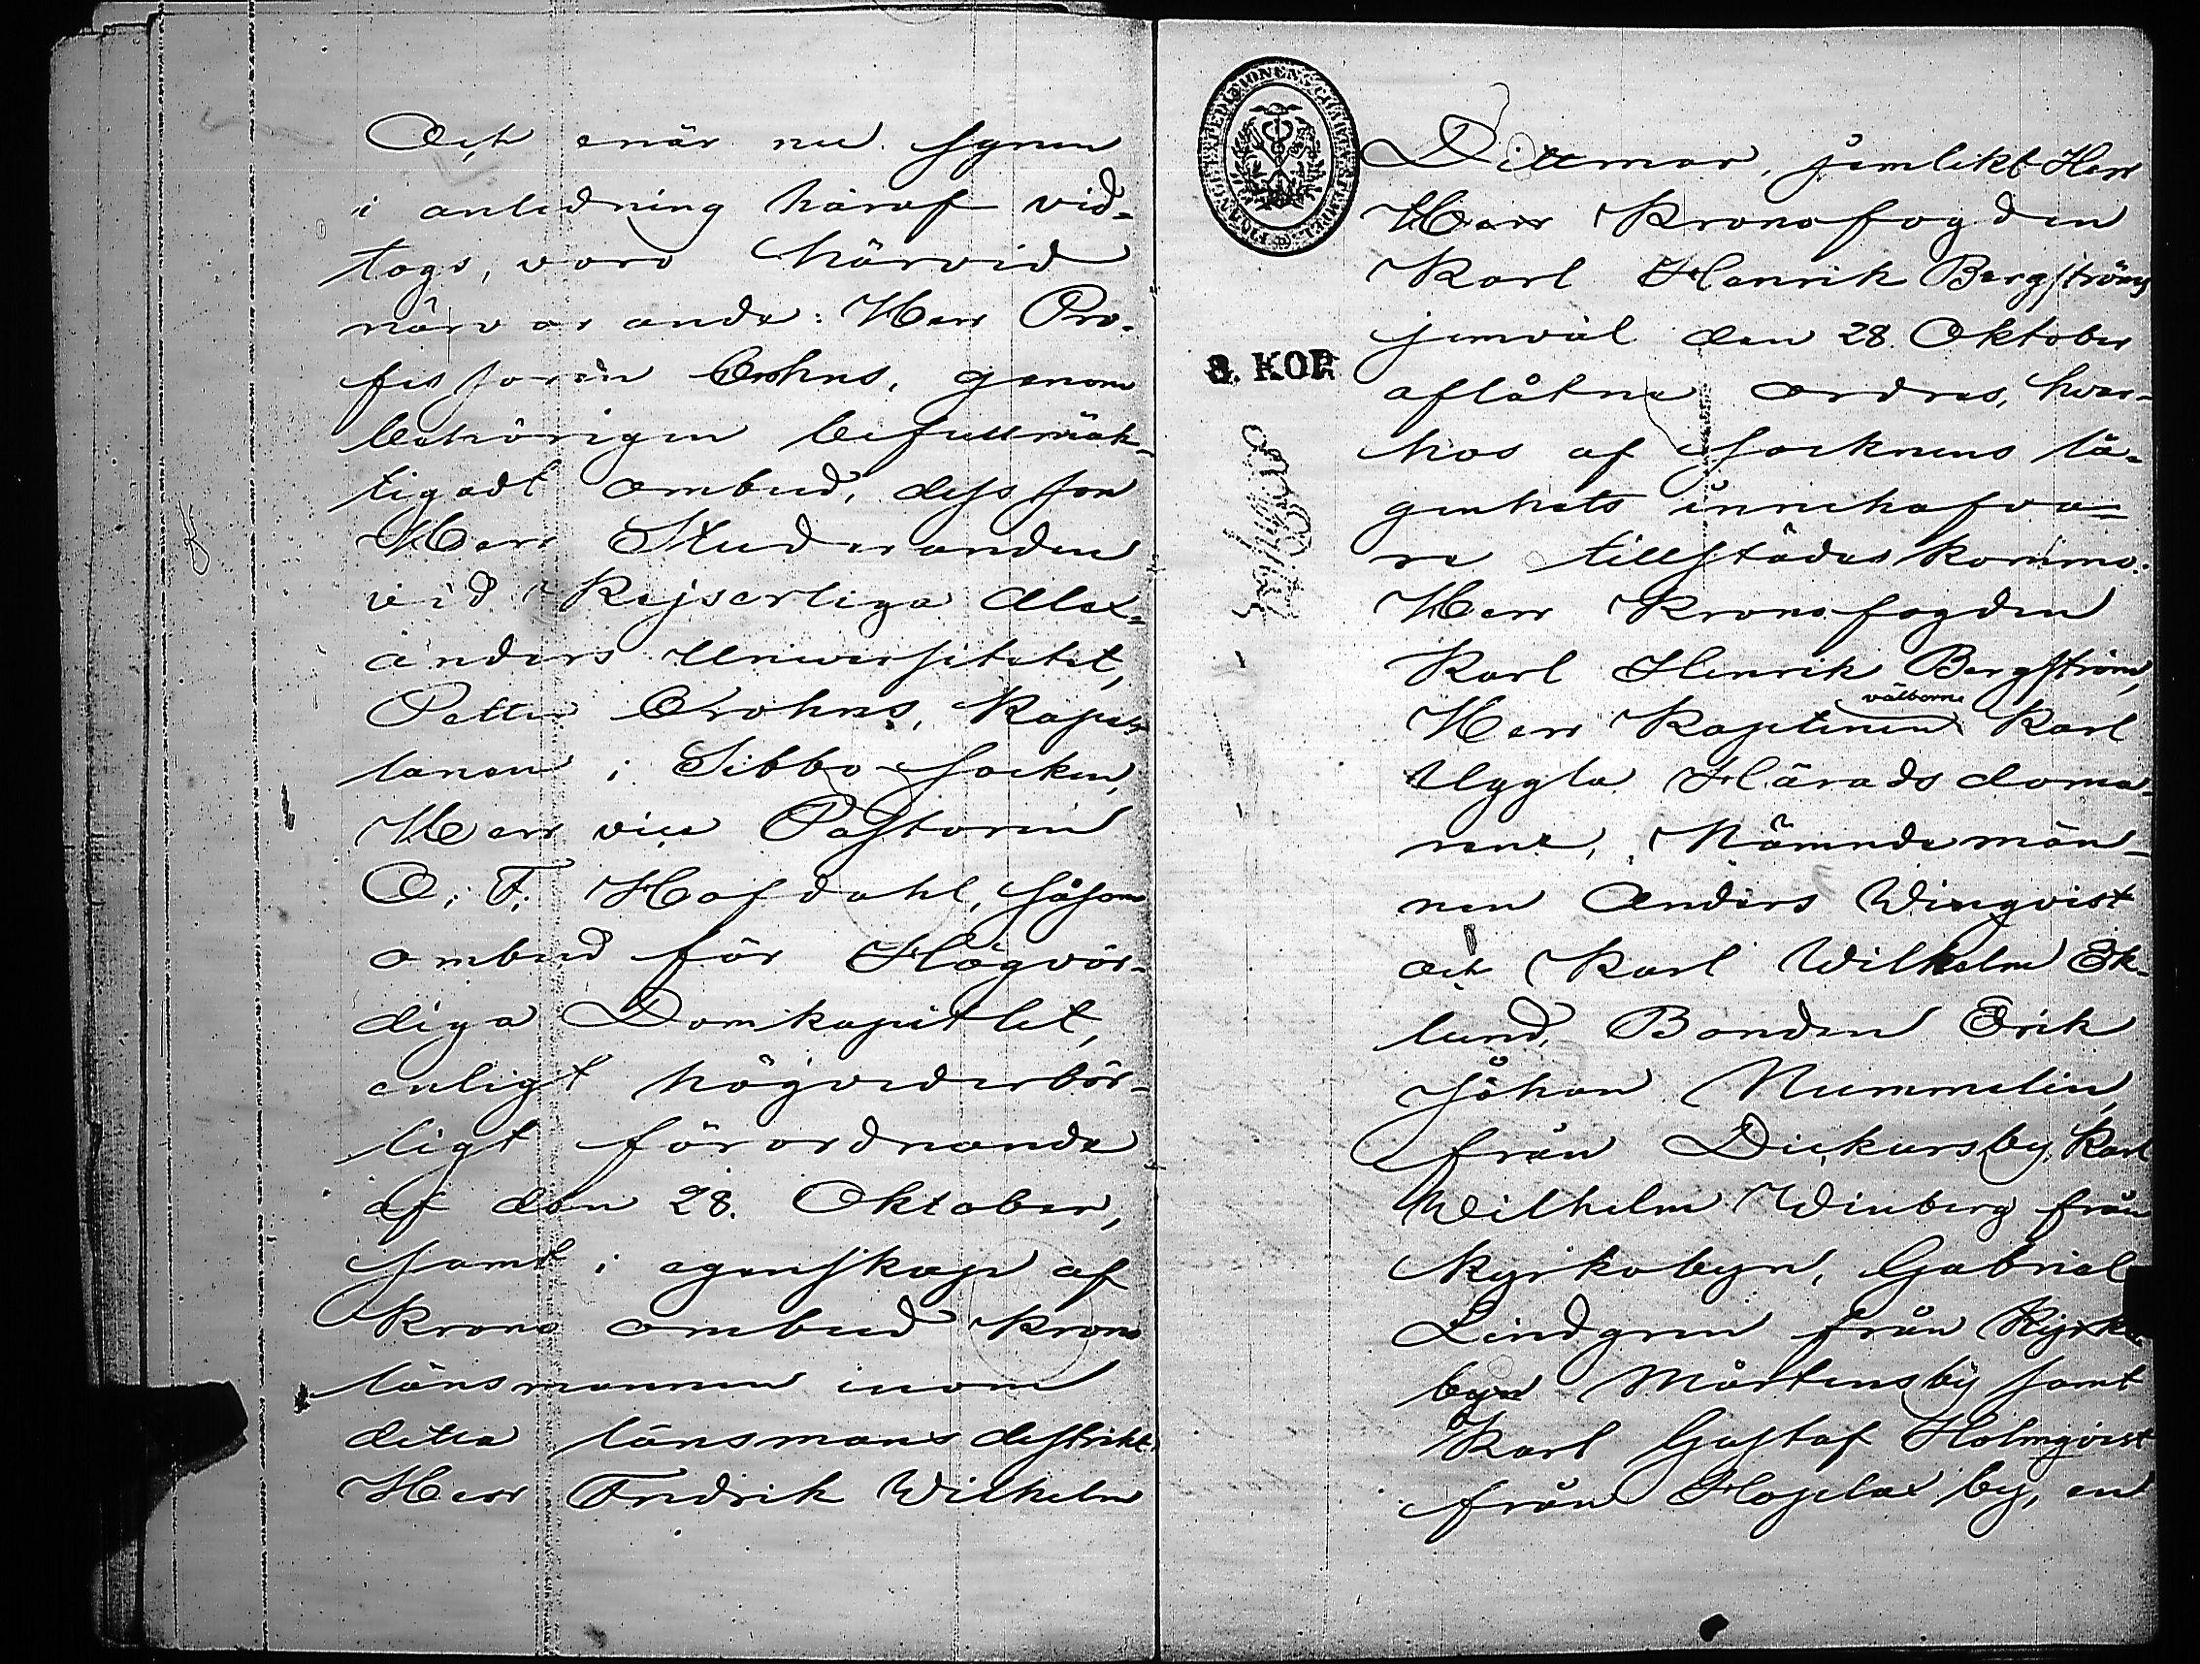 Och enär nu synen
i anledning häraf vid-
togs, voro härvid
närvarande: Herr Pro-
fessoren Crohns, genom
behörigen befullmäk-
tigadt ombud, dess son
Herr Studeranden
vid Kejserliga Alex-
anders Universitetet,
Petter Crohns, Kapel-
lanen i Sibbo socken,
Herr vice Pastorin
O. F. Hafdahl, såsom
ombud för Högvör-
diga Domkapitlet,
enligt högvederbör-
ligt förordnande
af den 28. Oktober,
samt i egenskap af
Krono ombud Krono
länsmannen inom
detta länsmans distrikt
Herr Fredrik Wilhelm
Dittmar, jemlikt Herr
Herr Kronofogden
Karl Henrik Bergströms
jemväl den 28. Oktober
aflåtne ordres, hvar-
hos af socknens lä-
genhets innehafva-
re tillstädes kommo:
Herr Kronofogden
Karl Henrik Bergström,
välborne
Herr Kapitenen Karl
Uggla Härads doma-
rene, Nämndemän-
nen Anders Winqvist
och Karl Wilhelm Ek-
lund, Bonden Erik
Johan Nummelin,
från Dickursby, Karl
Wilhelm Winberg från
Kyrkobyn, Gabriel
Lindgren från Kyrko
byn Mårtensby samt
Karl Gustaf Holmqvist
från Hoplax by, en
8. KOP.